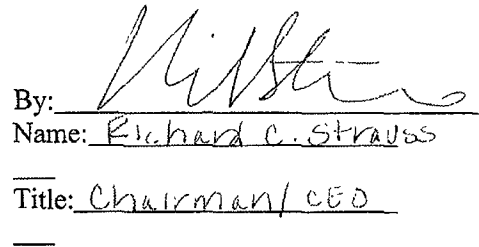 By:
Name: Richard C. Strauss
Title: Chairman/CEO